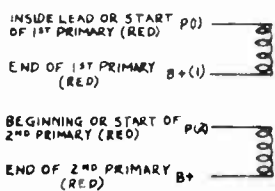 INSIDE LEAD OR START P(1)
OF 1ST PRIMARY (RED)
END OF 1ST PRIMARY B+(1)
(RED)
BEGINNING OR START OF P(2)
2ND PRIMARY (RED)
END OF 2ND PRIMARY B+
(RED)